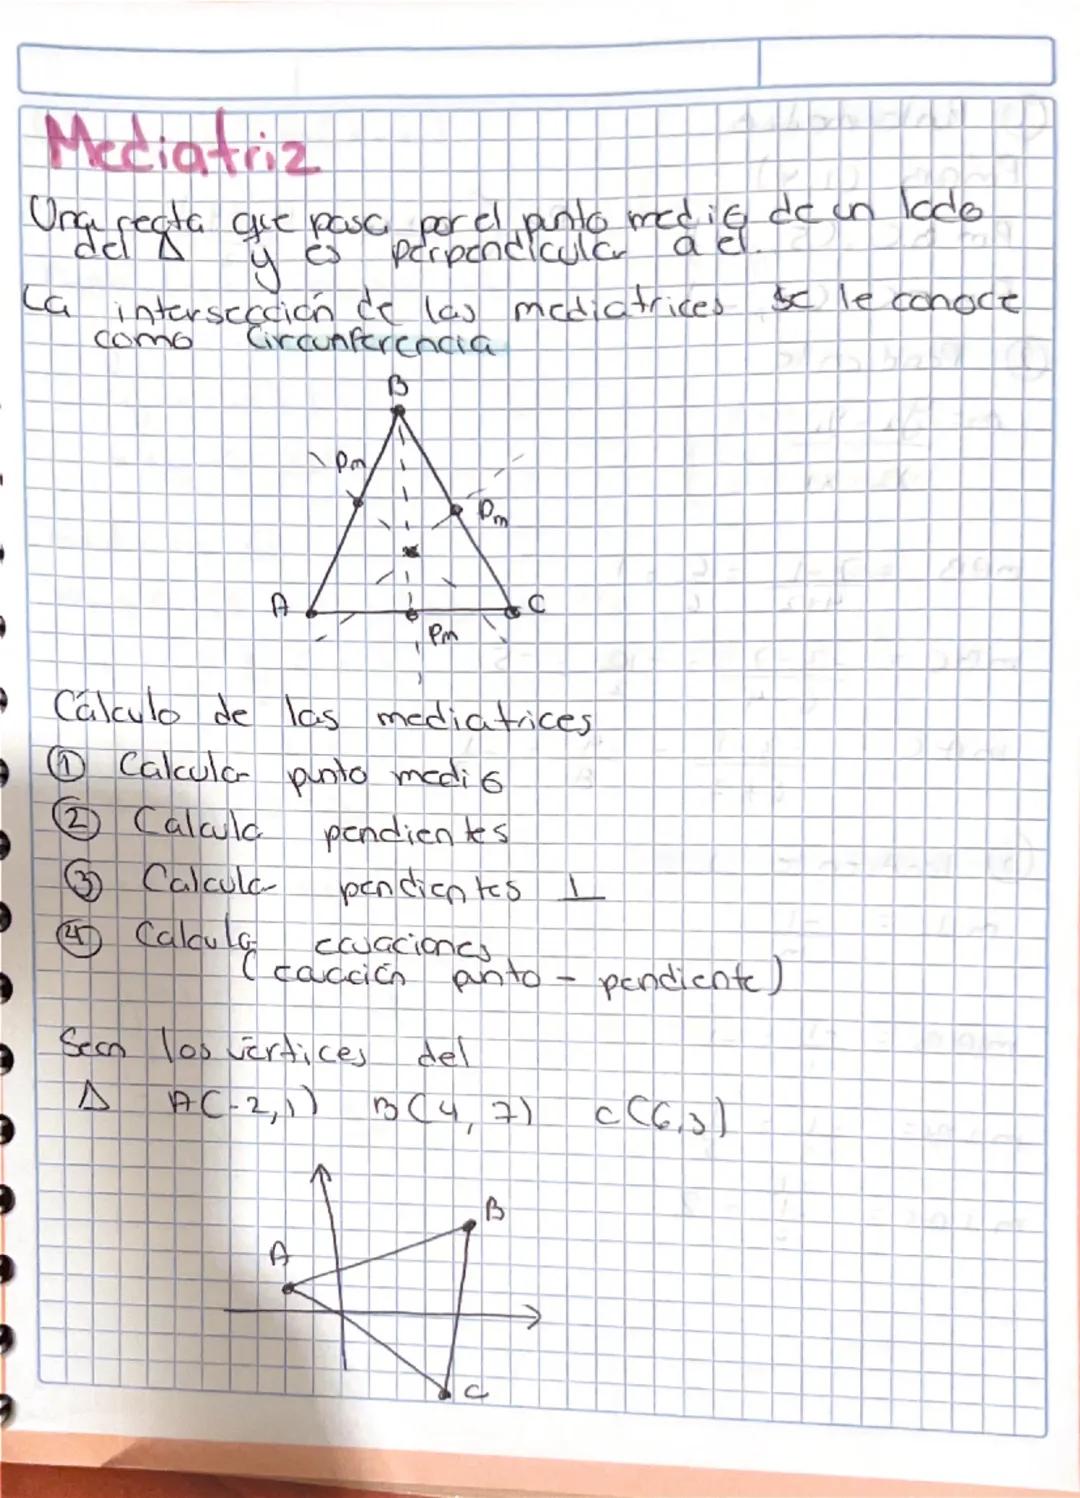 Mediatriz
Una recta que pasa por el punto medio de un lado
del Δ y es perpendicular a el.
La intersección de las mediatrices se le conoce
como Circunferencia
B
Pm
Pm
A
C
Pm
Cálculo de las mediatrices
① Calcular punto medio
② Calcula pendientes
③ Calcula pendientes ⊥
④ Calcula ecuaciones
(ecación punto - pendiente)
Sean los vértices del
Δ A(-2,1) B(4,7) C(6,3)
B
A
C